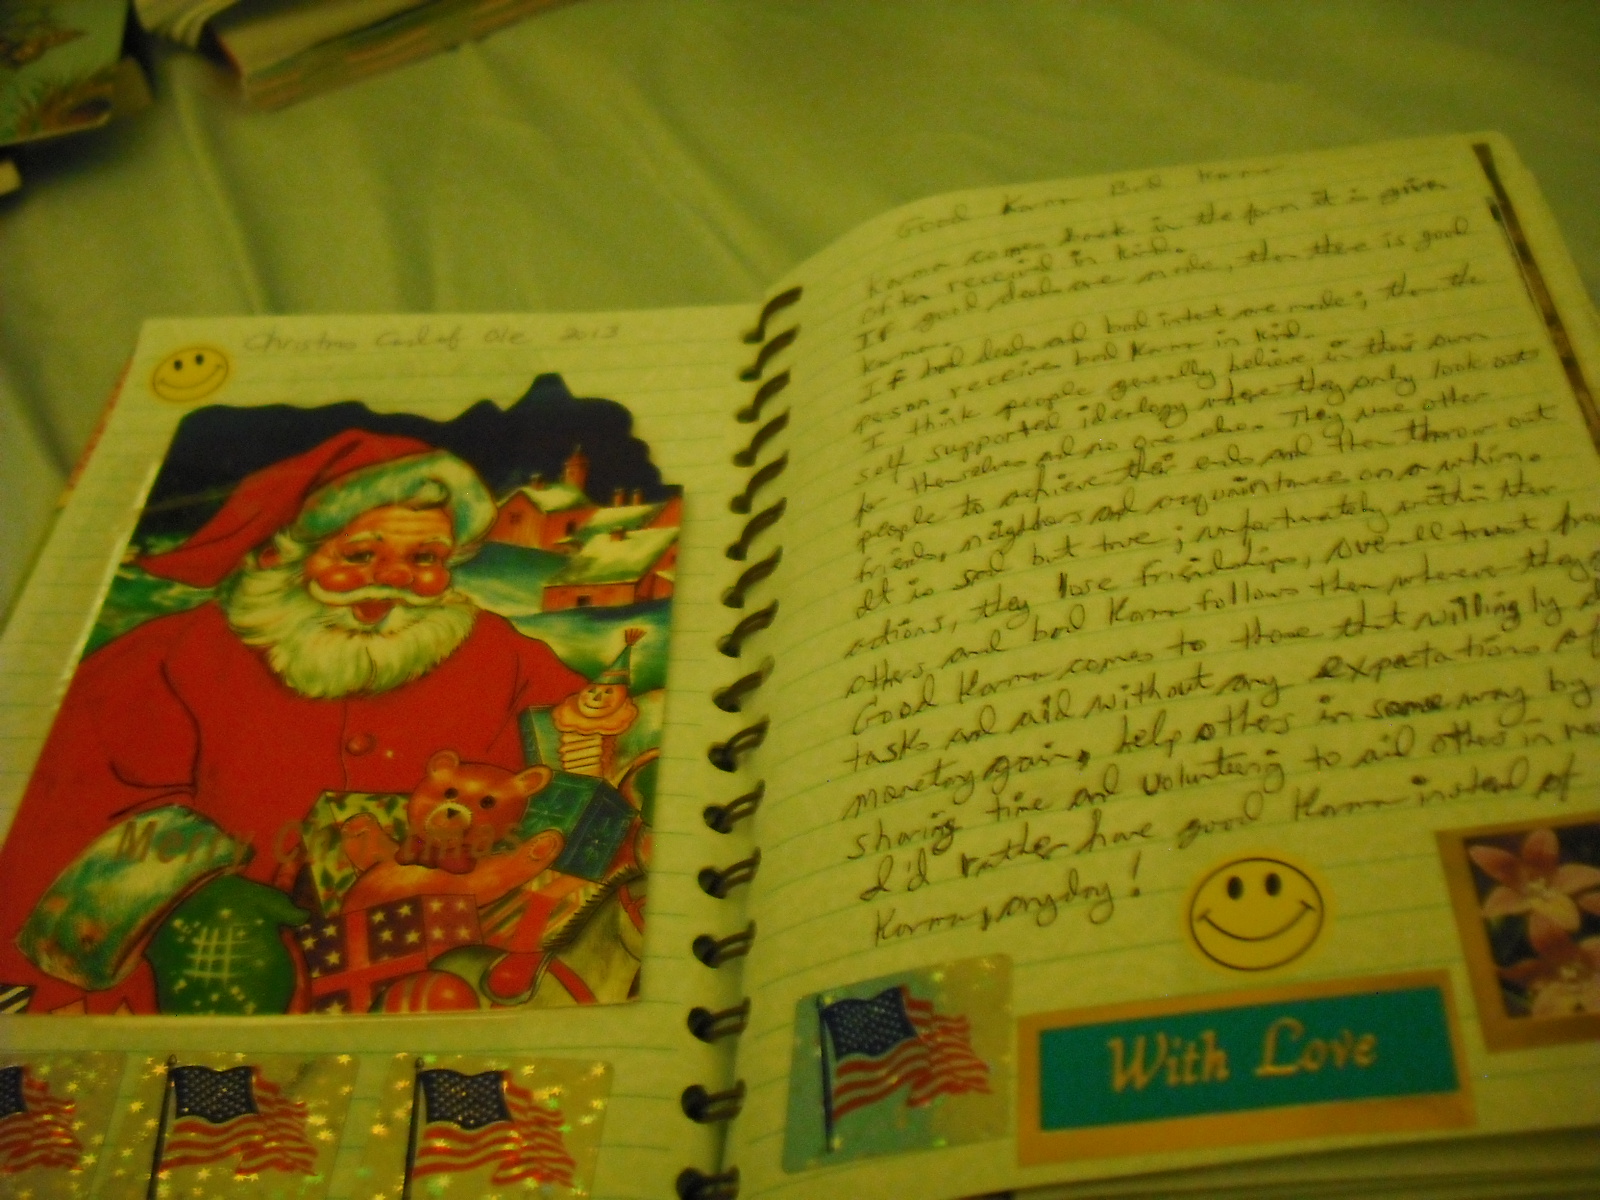 Christmas Card of Ole 2013
Merry Christmas
Good Karma Bad Karma
Karma comes back in the form it is given
often received in kind.
If good deeds are made, then there is good
karma.
If bad deeds and bad intent are made; then the
person receives bad karma in kind.
I think people generally believe in their own
self supported ideology where they only look out
for themselves and no one else. They use other
people to achieve their ends and then throw out
friends, neighbors and acquaintances on a whim.
It is sad but true; unfortunately within their
actions, they lose friendships, overall trust from
others and bad Karma follows them wherever they
Good Karma comes to those that willingly
tasks and aid without any expectations of
monetary gain, help others in some way by
sharing time and volunteering to aid others in
I'd rather have good Karma instead of
Karma, anyday!
With Love